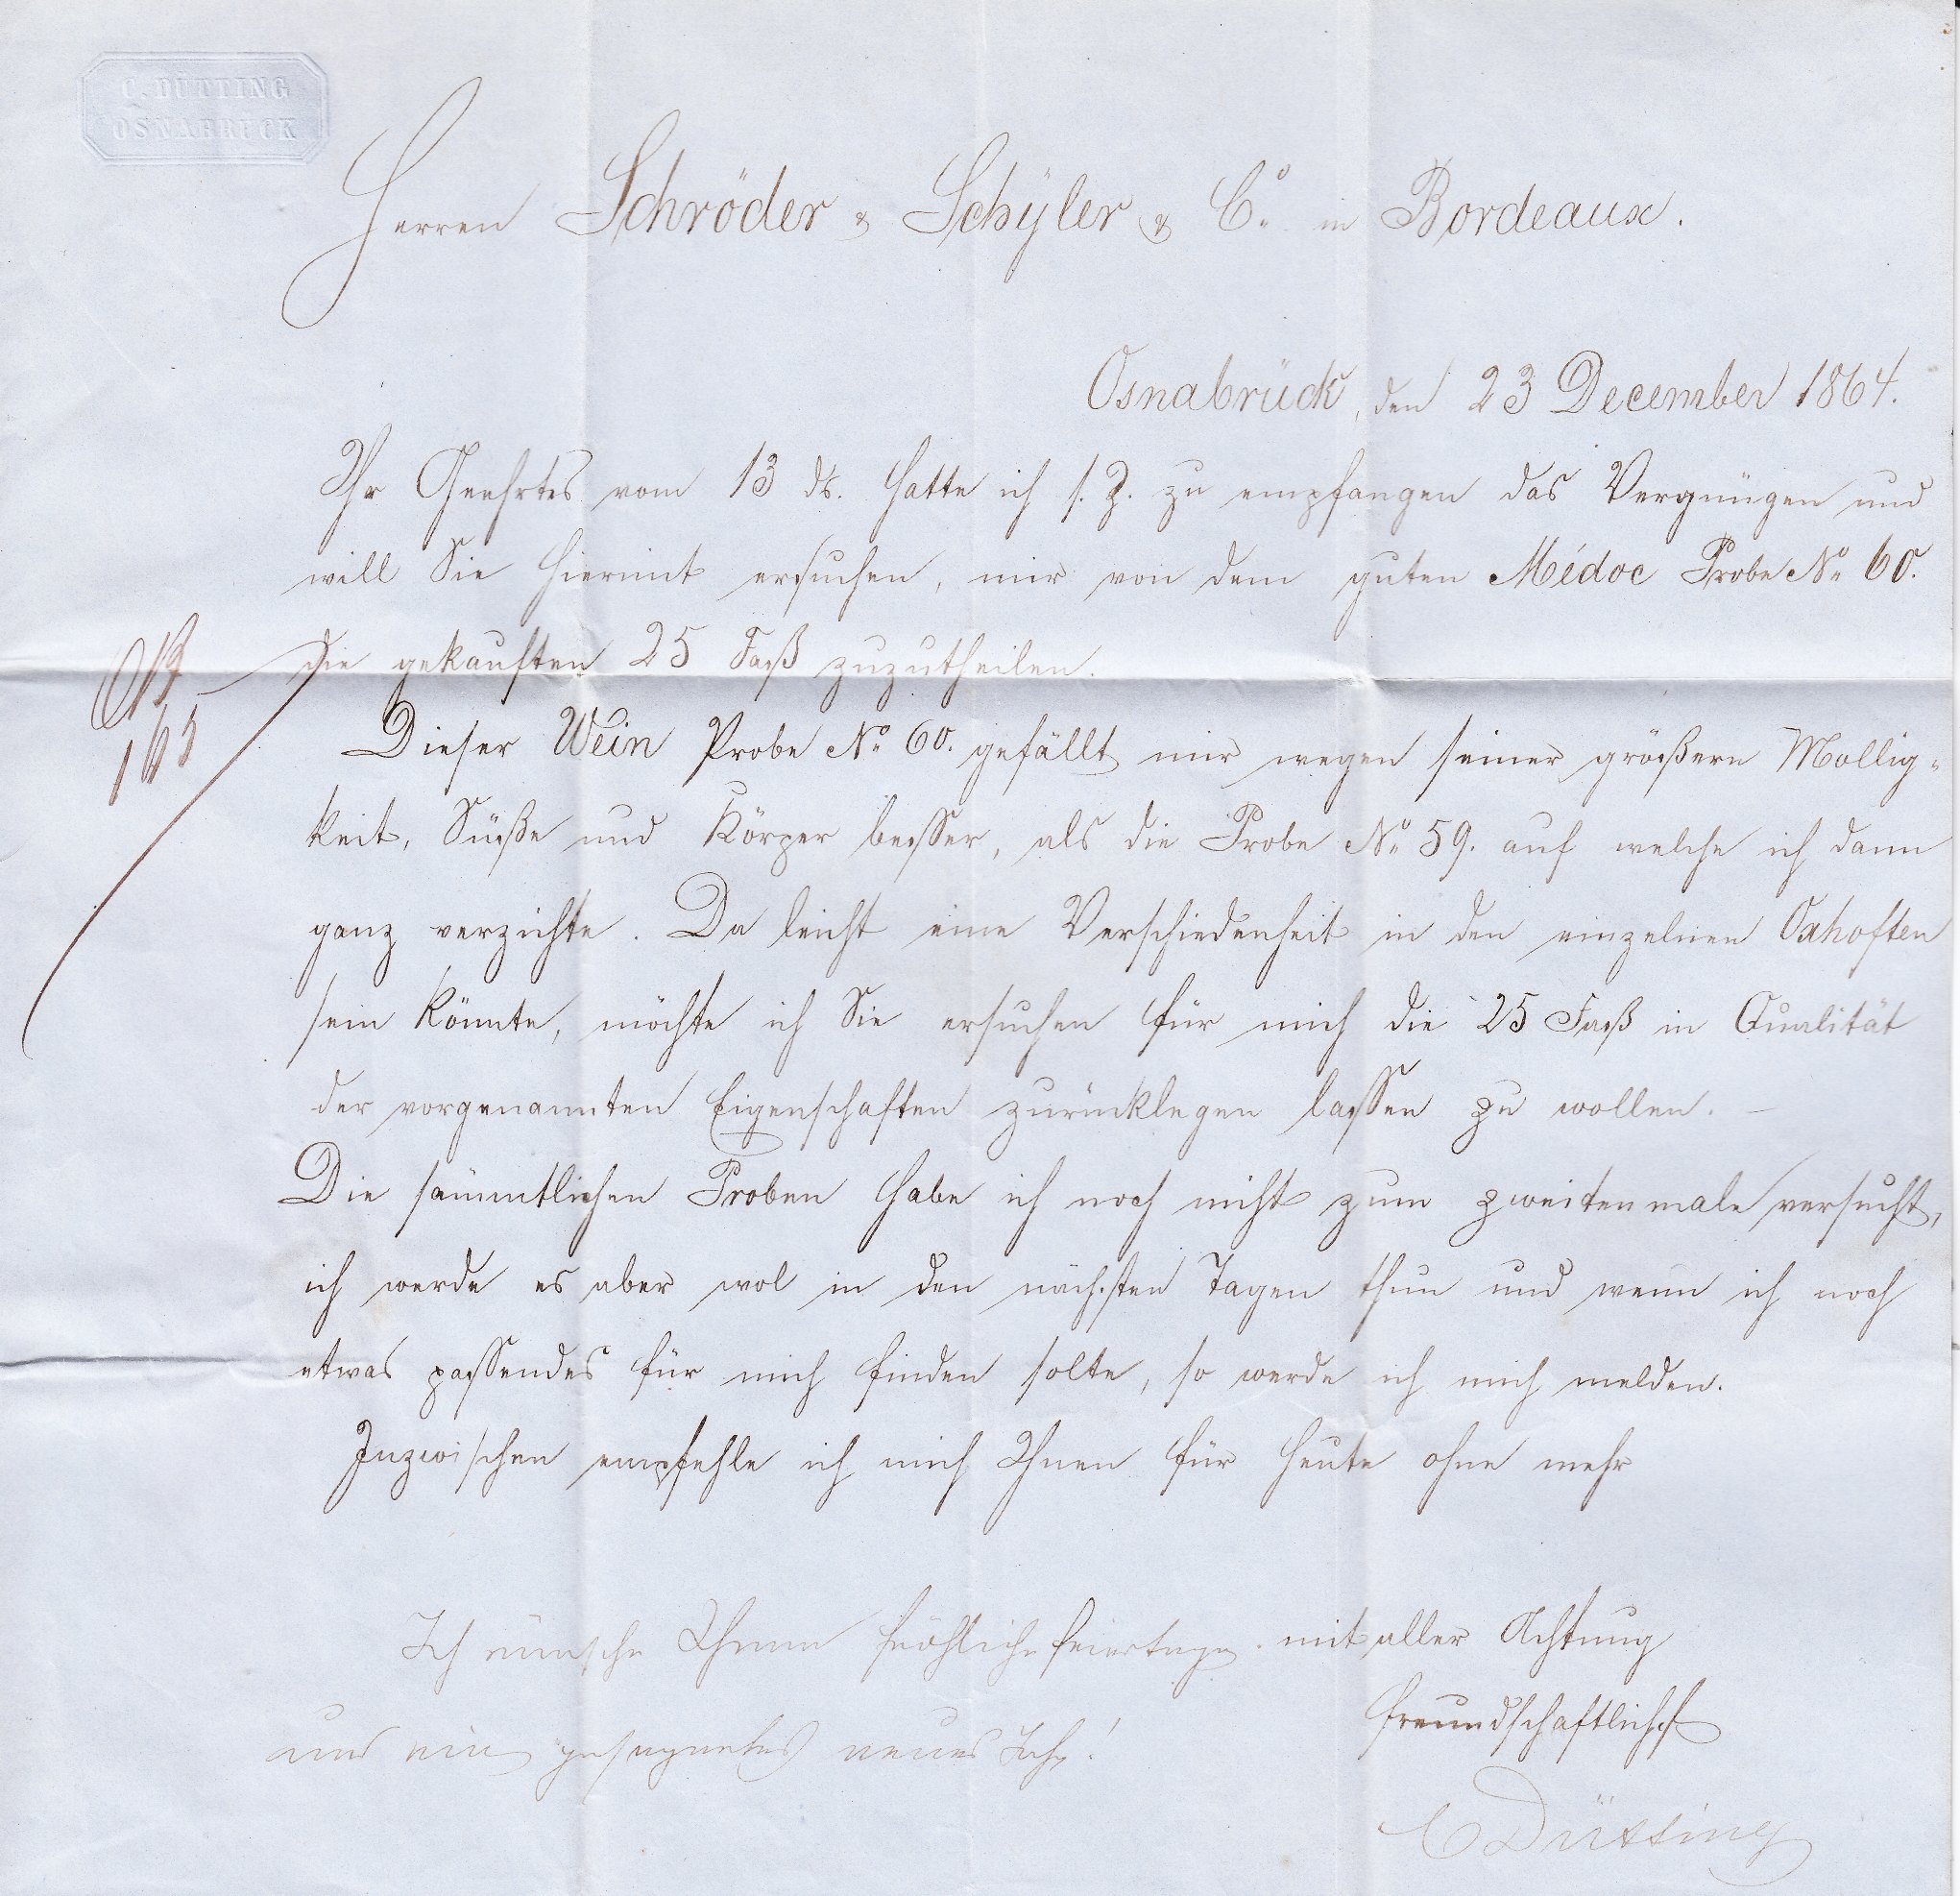 C. DÜTTING
OSNABRÜCK
Herren Schröder & Schÿler & Co. in Bordeaux.
Osnabrück, den 23 December 1864.
Ihr Geehrtes vom 13 ds. hatte ich s. Z. zu empfangen das Vergnügen und
will Sie hiermit ersuchen, mir von dem guten Médoc Probe No 60.
die gekauften 25 Faß zuzutheilen.
165
Dieser Wein Probe No 60. gefällt mir wegen seiner größern Mollig-
keit, Süße und Körper besser, als die Probe No 59. auf welche ich dann
ganz verzichte. Da leicht eine Verschiedenheit in den einzelnen Oxhoften
sein könnte, möchte ich Sie ersuchen für mich die 25 Faß in Qualität
der vorgenannten Eigenschaften zurücklegen lassen zu wollen. –
Die sämmtlichen Proben habe ich noch nicht zum zweitenmale versucht,
ich werde es aber wol in den nächsten Tagen thun und wenn ich noch
etwas passendes für mich finden solte, so werde ich mich melden.
Inzwischen empfehle ich mich Ihnen für heute ohne mehr
mit aller Achtung
freundschaftlichst
C Dütting
Ich wünsche Ihnen fröhliche Feiertage
und ein gesegnetes neues Jahr!